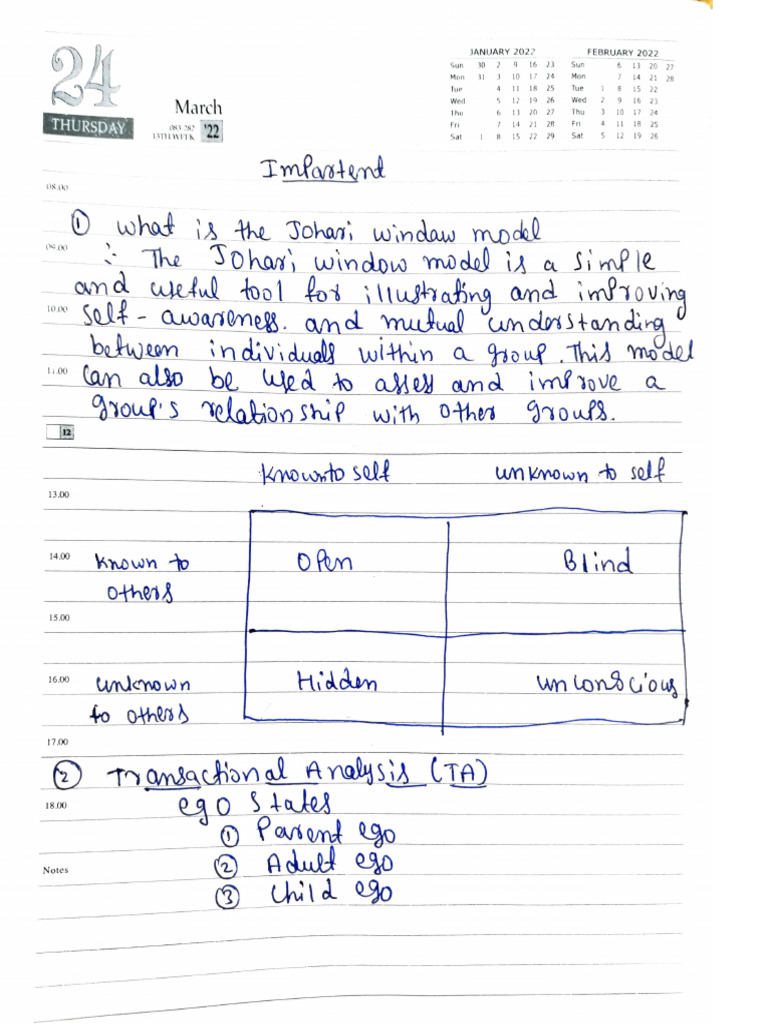 24
THURSDAY
March
083-282
13TH WEEK
'22
JANUARY 2022
Sun 30 2 9 16 23
Mon 31 3 10 17 24
Tue 4 11 18 25
Wed 5 12 19 26
Thu 6 13 20 27
Fri 7 14 21 28
Sat 1 8 15 22 29
FEBRUARY 2022
Sun 6 13 20 27
Mon 7 14 21 28
Tue 1 8 15 22
Wed 2 9 16 23
Thu 3 10 17 24
Fri 4 11 18 25
Sat 5 12 19 26
Impartend
08.00
① what is the Johari windaw model
09.00 ∴ The Johari window model is a simple
and useful tool for illustrating and improving
10.00 self-awareness. and mutual understanding
between individuals within a group. This model
11.00 can also be used to asses and improve a
group's relationship with other groups.
12
known to self unknown to self
13.00
14.00 known to others Open Blind
15.00
16.00 unknown to others Hidden unconscious
17.00
② Transactional Analysis (TA)
18.00 ego states
① Parent ego
Notes ② Adult ego
③ Child ego